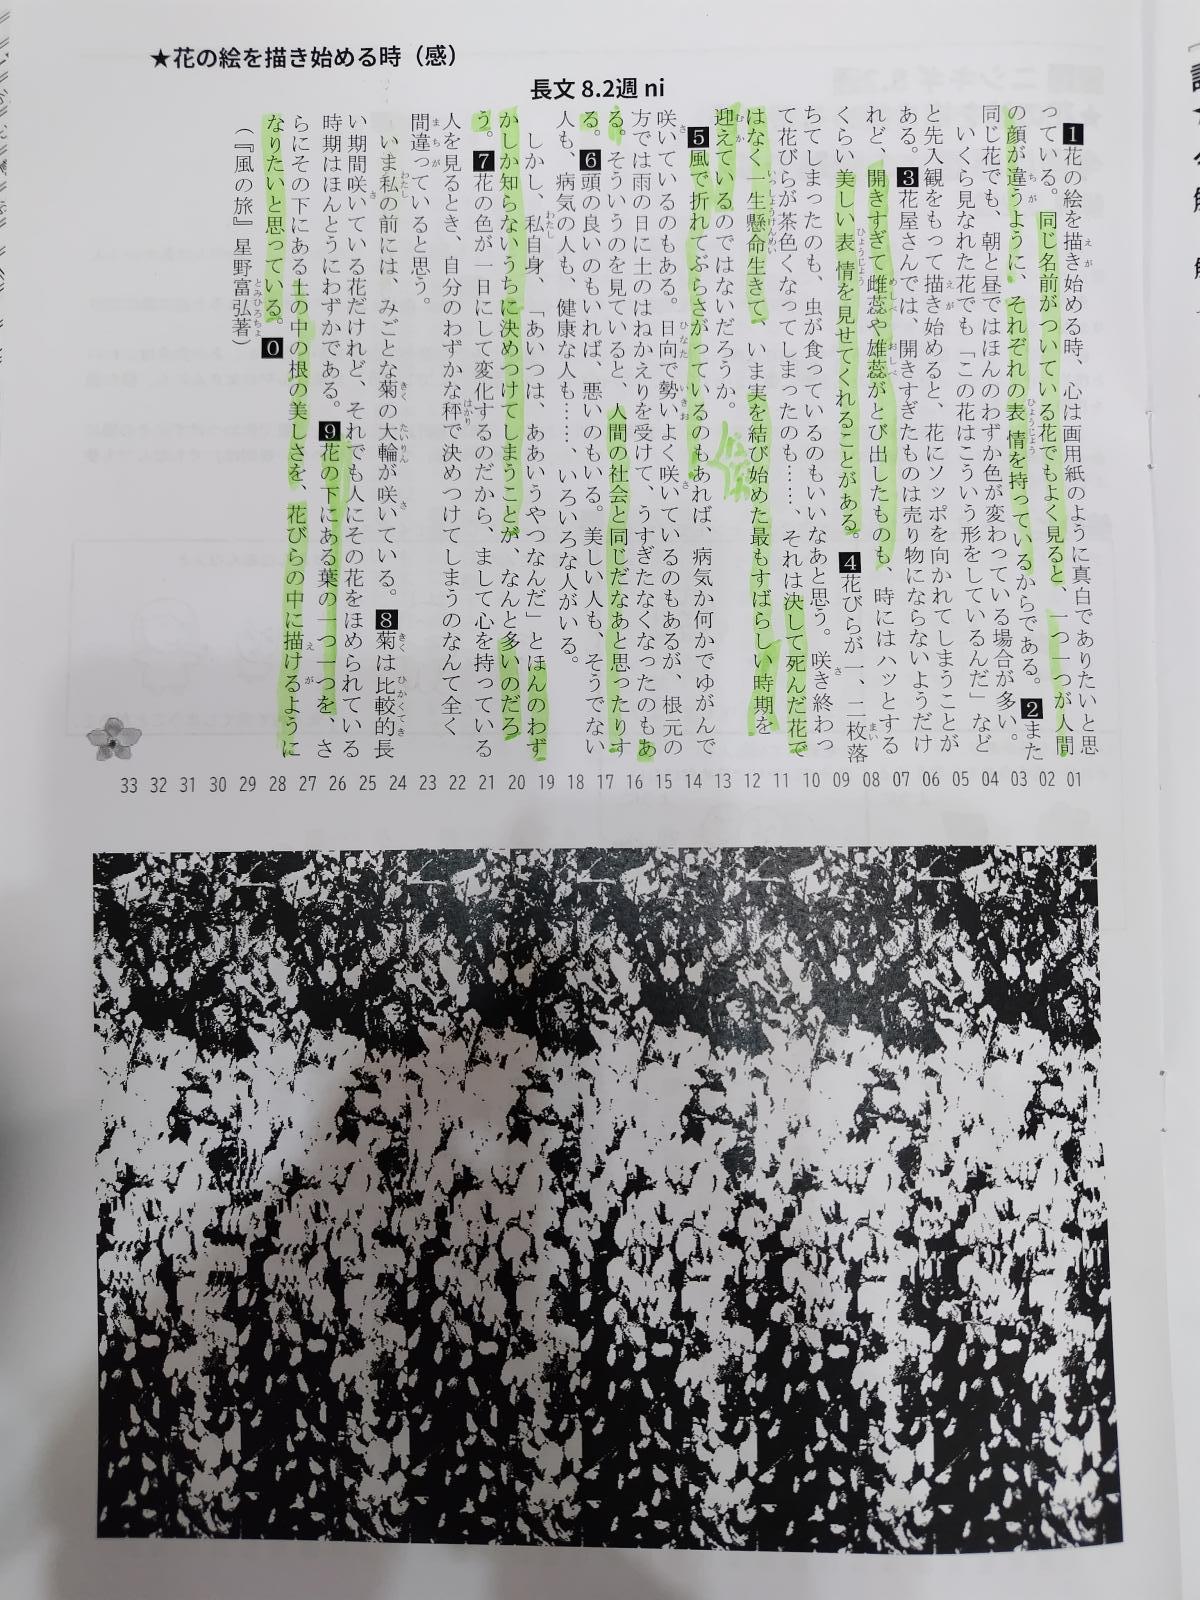 ★花の絵を描き始める時（感）
長文 8.2週 ni
1花の絵を描き始める時、心は画用紙のように真白でありたいと思
っている。同じ名前がついている花でもよく見ると、一つ一つが人間
の顔が違うように、それぞれの表情を持っているからである。2また
同じ花でも、朝と昼ではほんのわずか色が変わっている場合が多い。
いくら見なれた花でも「この花はこういう形をしているんだ」など
と先入観をもって描き始めると、花にソッポを向かれてしまうことが
ある。3花屋さんでは、開きすぎたものは売り物にならないようだけ
れど、開きすぎて雌蕊や雄蕊がとび出したものも、時にはハッとする
くらい美しい表情を見せてくれることがある。4花びらが一、二枚落
ちてしまったのも、虫が食っているのもいいなあと思う。咲き終わっ
て花びらが茶色くなってしまったのも……、それは決して死んだ花で
はなく一生懸命生きて、いま実を結び始めた最もすばらしい時期を
迎えているのではないだろうか。
5風で折れてぶらさがっているのもあれば、病気か何かでゆがんで
咲いているのもある。日向で勢いよく咲いているのもあるが、根元の
方では雨の日に土のはねかえりを受けて、うすぎたなくなったのもあ
る。そういうのを見ていると、人間の社会と同じだなあと思ったりす
る。6頭の良いのもいれば、悪いのもいる。美しい人も、そうでない
人も、病気の人も、健康な人も……、いろいろな人がいる。
しかし、私自身、「あいつは、ああいうやつなんだ」とほんのわず
かしか知らないうちに決めつけてしまうことが、なんと多いのだろ
う。7花の色が一日にして変化するのだから、まして心を持っている
人を見るとき、自分のわずかな秤で決めつけてしまうのなんて全く
間違っていると思う。
いま私の前には、みごとな菊の大輪が咲いている。8菊は比較的長
い期間咲いている花だけれど、それでも人にその花をほめられている
時期はほんとうにわずかである。9花の下にある葉の一つ一つを、さ
らにその下にある土の中の根の美しさを、花びらの中に描けるように
なりたいと思っている。0
（『風の旅』星野富弘著）
33 32 31 30 29 28 27 26 25 24 23 22 21 20 19 18 17 16 15 14 13 12 11 10 09 08 07 06 05 04 03 02 01